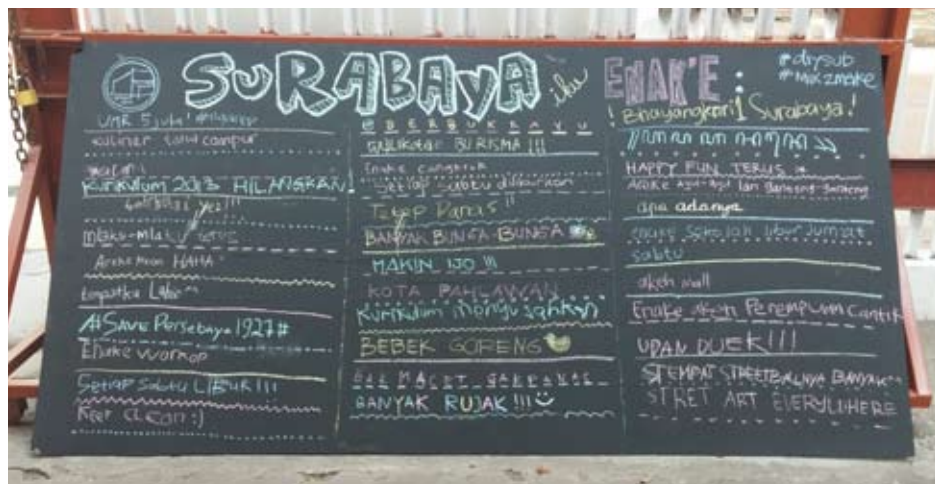 SURABAYA iku ENAK'E :
#diysub
#Mix2make
UMR 5 juta!
kuliner campur
Kurikulum 2013 HILANGKAN!
mlaku-mlaku terus
HAHA
Lahir ^^
#SAVE Persebaya 1927#
Enake warkop
Setiap sabtu LIBUR!!!
Keep clean :)
BERBUKRAYU
BURISMA !!!
Enake cangkruk
Setiap sabtu diliburkan
Tetap Panas !!
BANYAK BUNGA-BUNGA
MAKIN IJO !!!
KOTA PAHLAWAN
Kurikulum menyusahkan
BEBEK GORENG
GAK MACET
BANYAK RUJAK !!!
! Bhayangkari 1 Surabaya!
HAPPY FUN TERUS
Areke ayu-ayu lan ganteng-ganteng
apa adanya
enake sekolah libur Jumat
sabtu
akeh mall
Enake akeh Perempuan Cantik
UDAN DUEK!!!
STEMPAT STREETBALNYA BANYAK
STRET ART EVERYWHERE